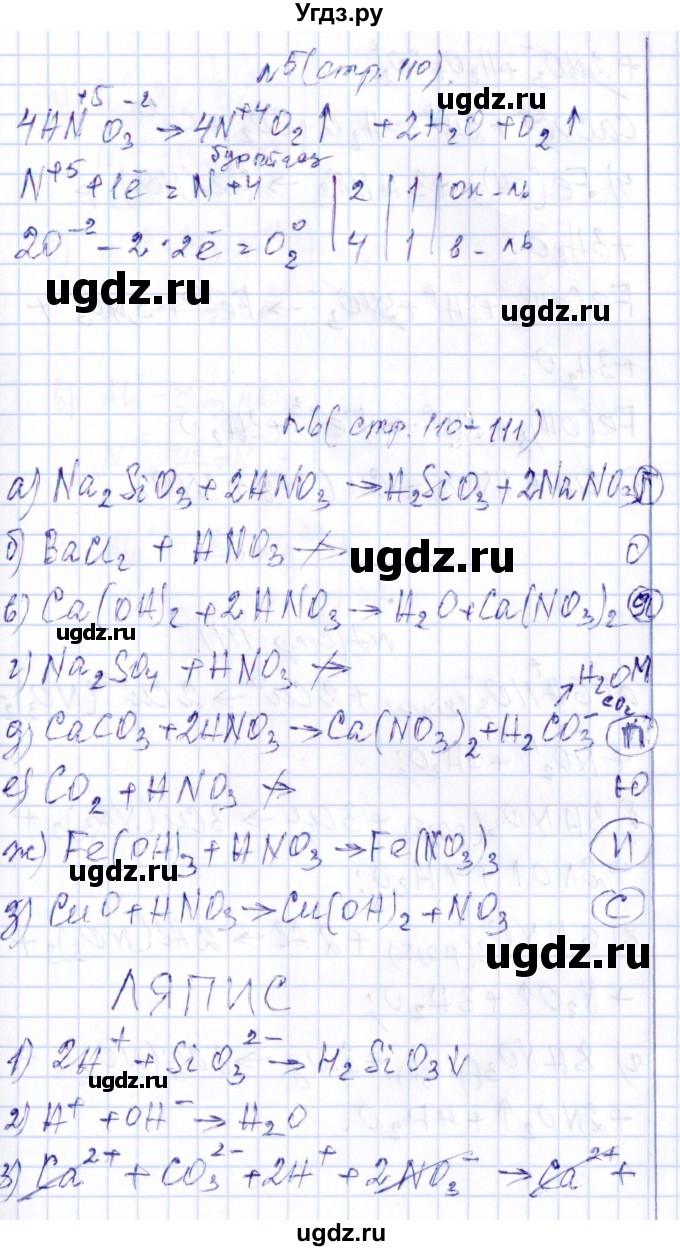 Угдз.ру
№5 (стр. 110).
+5 -2
4HNO₃ → 4N⁺⁴O₂↑ + 2H₂O + O₂↑
бурый газ
N⁺⁵ + 1ē = N⁺⁴ | 2 | 1 | ок-ль
2O⁻² - 2·2ē = O₂⁰ | 4 | 1 | в-ль
ugdz.ru
ugdz.ru
ugdz.ru
№6 (стр. 110-111)
а) Na₂SiO₃ + 2HNO₃ → H₂SiO₃ + 2NaNO₃ Л
б) BaCl₂ + HNO₃ ↛ О
ugdz.ru
в) Ca(OH)₂ + 2HNO₃ → H₂O + Ca(NO₃)₂ Я
ugdz.ru
г) Na₂SO₄ + HNO₃ ↛ М
↗ H₂O
CO₂
д) CaCO₃ + 2HNO₃ → Ca(NO₃)₂ + H₂CO₃ П
е) CO₂ + HNO₃ ↛ Ю
ж) Fe(OH)₃ + HNO₃ → Fe(NO₃)₃ И
ugdz.ru
з) CuO + HNO₃ → Cu(OH)₂ + NO₃ С
ugdz.ru
ЛЯПИС
1) 2H⁺ + SiO₃²⁻ → H₂SiO₃↓
ugdz.ru
2) H⁺ + OH⁻ → H₂O
3) Ca²⁺ + CO₃²⁻ + 2H⁺ + 2NO₃⁻ → Ca²⁺ +
ugdz.ru
ugdz.ru